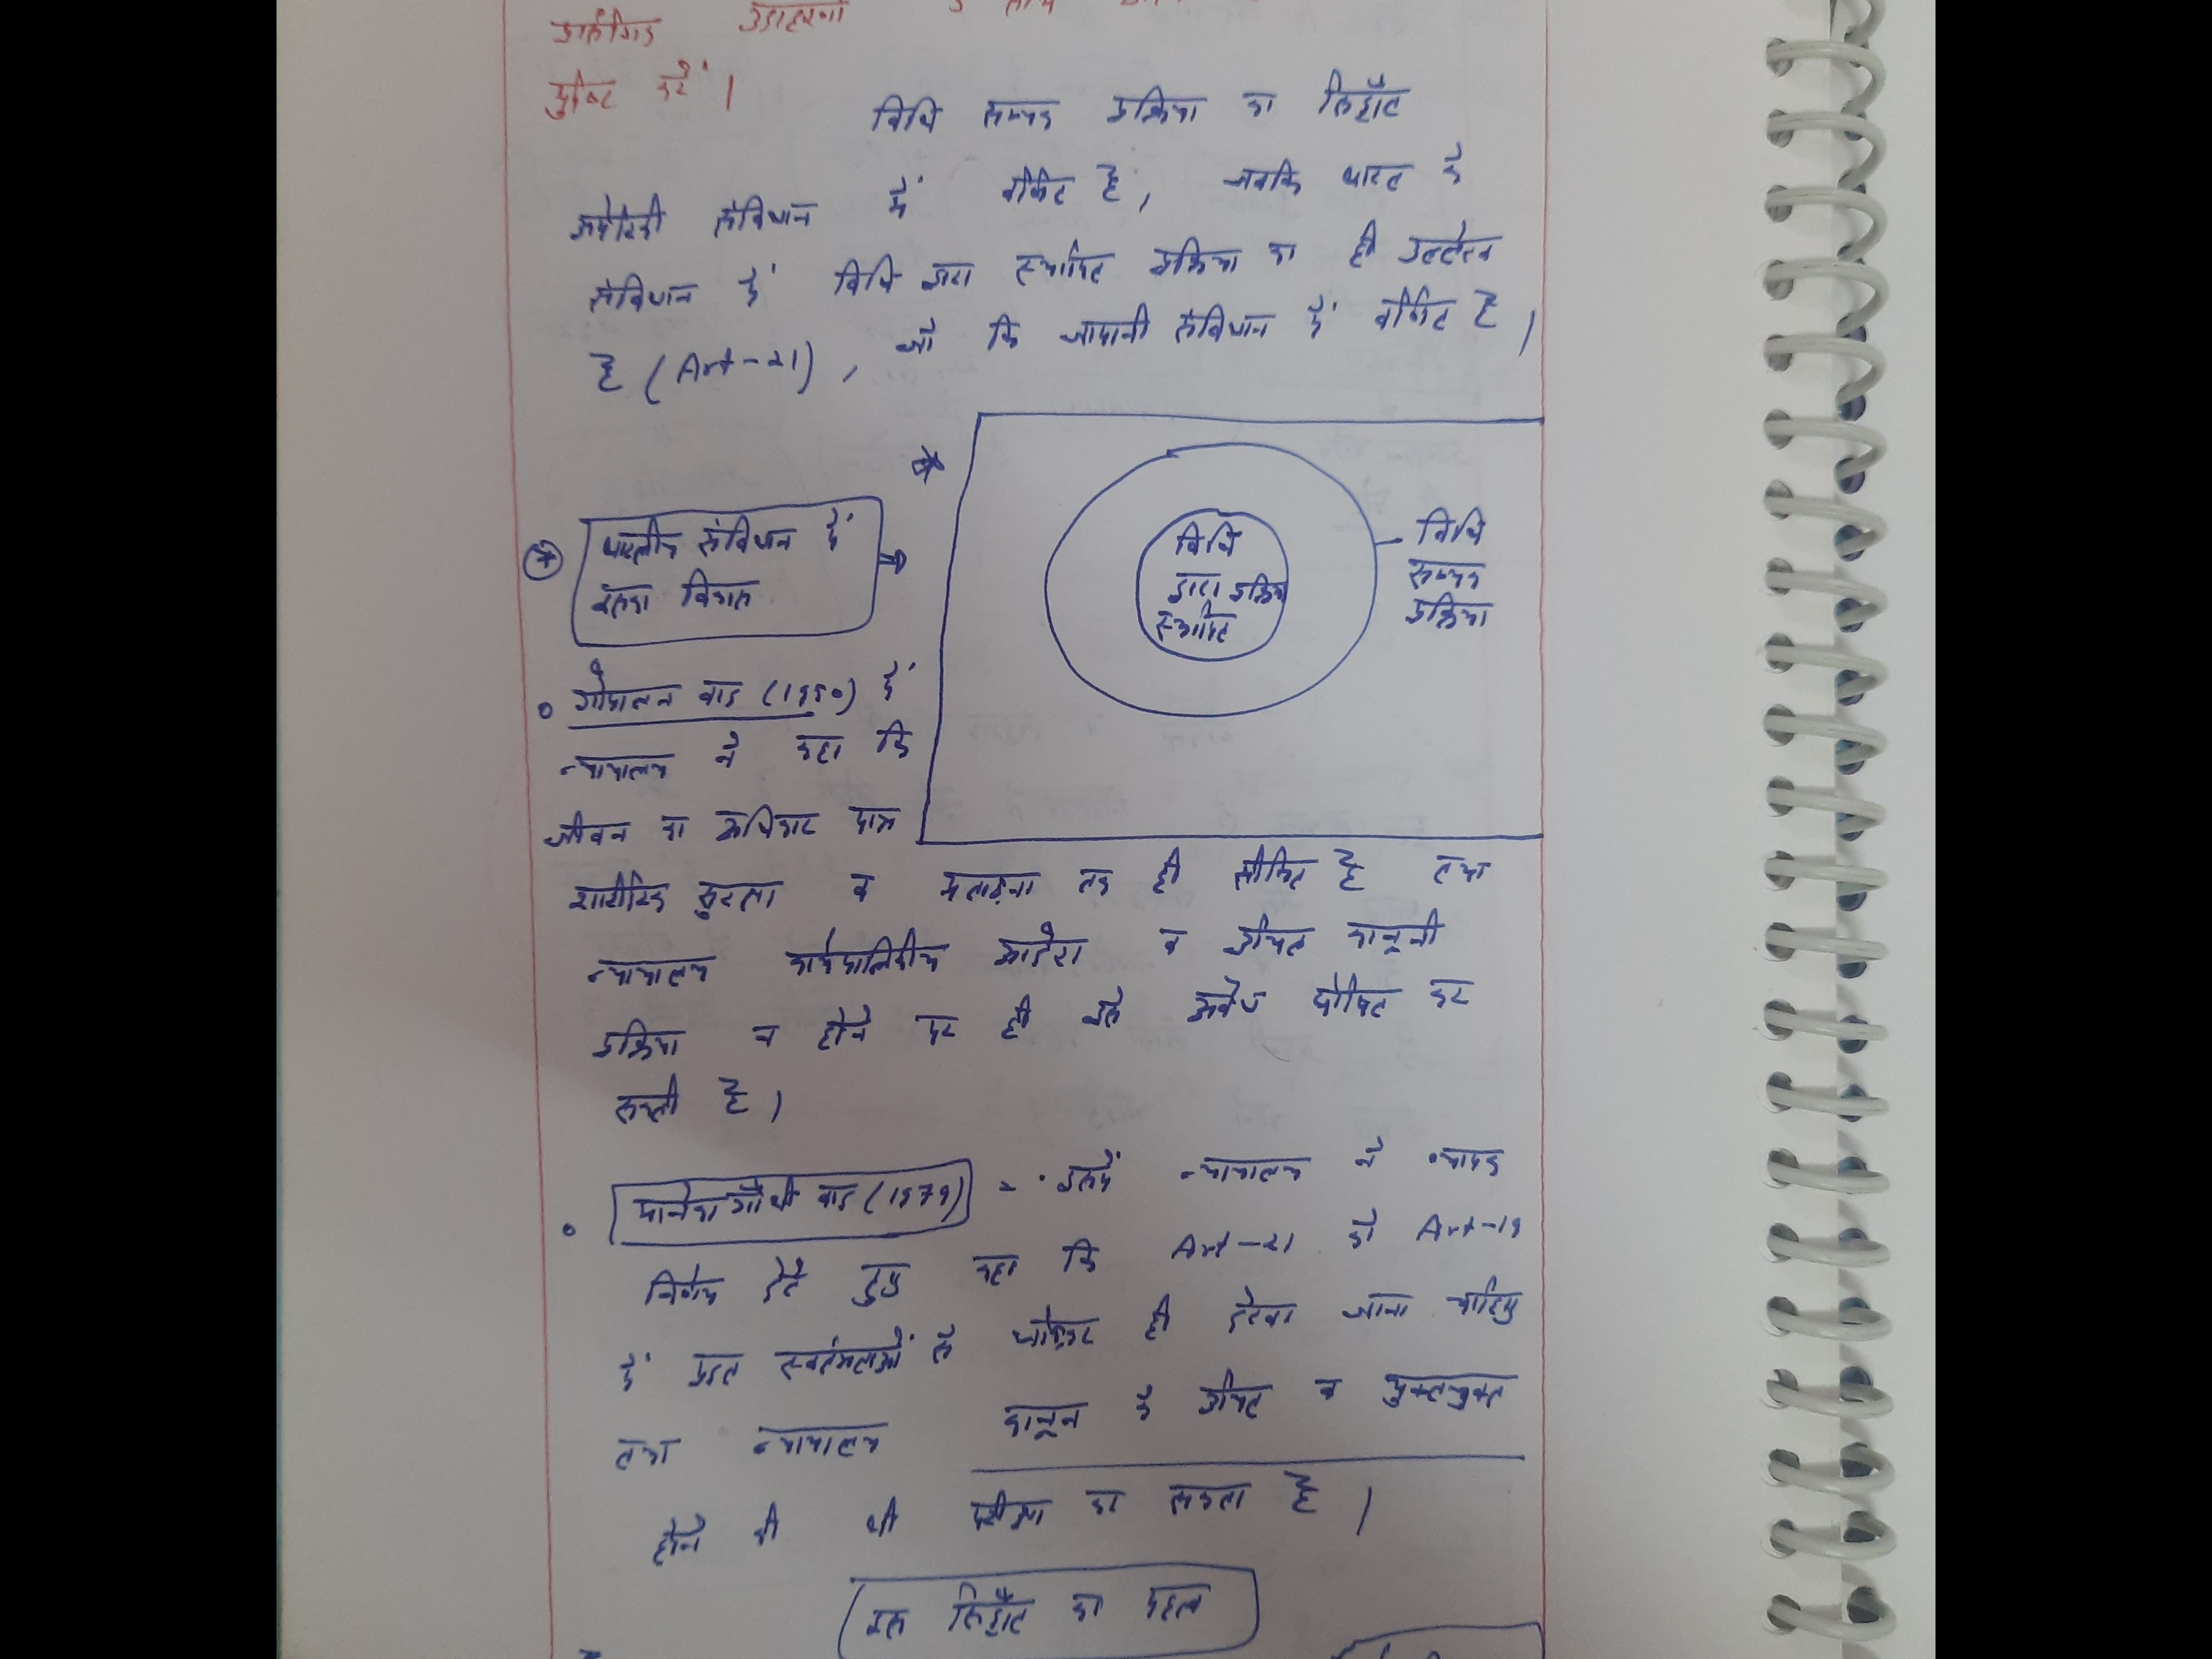 प्रासंगिक उदाहरणों के साथ
पुष्टि करें।
विधि सम्यक प्रक्रिया का सिद्धाँत
अमेरिकी संविधान में वर्णित है, जबकि भारत के
संविधान में विधि द्वारा स्थापित प्रक्रिया का ही उल्लेख
है (Art-21), जो कि जापानी संविधान में वर्णित है।
विधि
द्वारा प्रक्रिया
स्थापित
विधि
सम्यक
प्रक्रिया
भारतीय संविधान में
इसका विकास
गोपालन वाद (1950) में
न्यायालय ने कहा कि
जीवन का अधिकार मात्र
शारीरिक सुरक्षा व प्रताड़ना तक ही सीमित है तथा
न्यायालय कार्यपालिकीय आदेश व उचित कानूनी
प्रक्रिया न होने पर ही उसे अवैध घोषित कर
सकती है।
मानेका गाँधी वाद (1979) - इसमें न्यायालय ने व्यापक
निर्णय देते हुए कहा कि Art-21 को Art-19
में प्रदत्त स्वतंत्रताओं से जोड़कर ही देखा जाना चाहिए
तथा न्यायालय कानून के उचित व युक्तयुक्त
होने की भी परीक्षा कर सकता है।
इस सिद्धाँत का महत्व